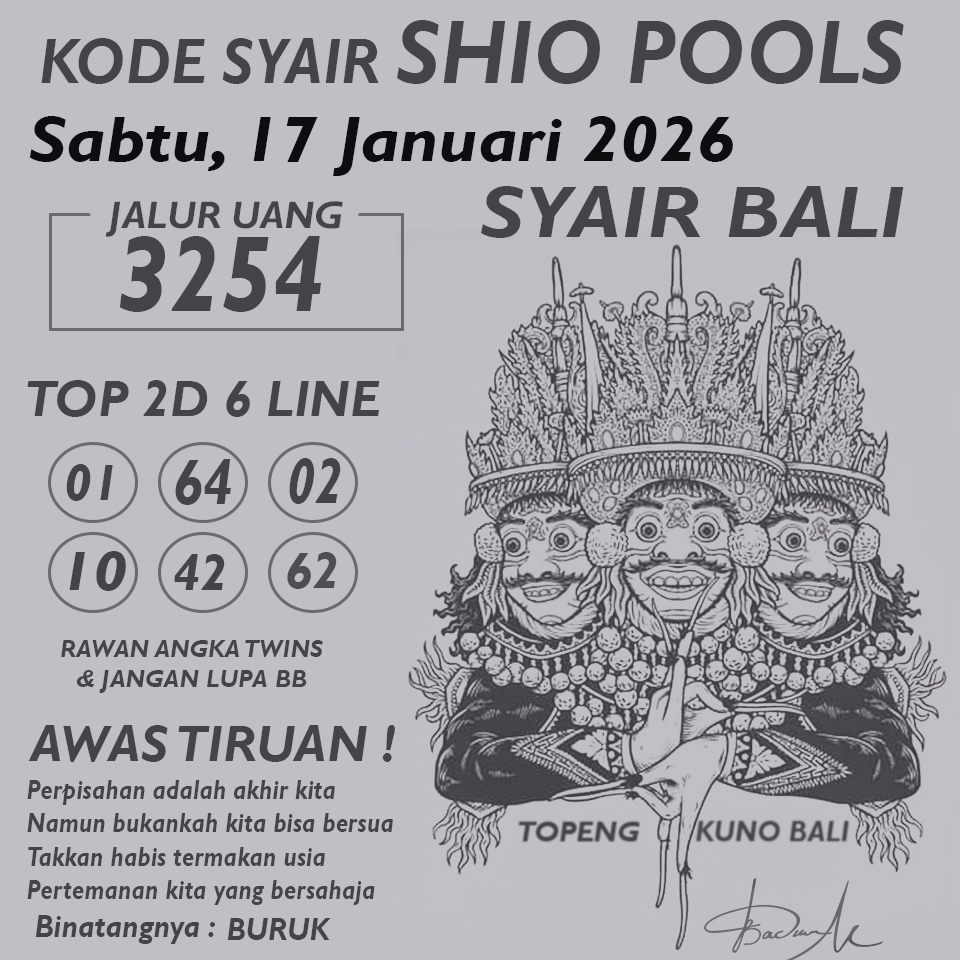 KODE SYAIR SHIO POOLS
Sabtu, 17 Januari 2026
SYAIR BALI
JALUR UANG
3254
TOP 2D 6 LINE
01 64 02
10 42 62
RAWAN ANGKA TWINS
& JANGAN LUPA BB
AWAS TIRUAN !
Perpisahan adalah akhir kita
Namun bukankah kita bisa bersua
Takkan habis termakan usia
Pertemanan kita yang bersahaja
Binatangnya : BURUK
TOPENG KUNO BALI